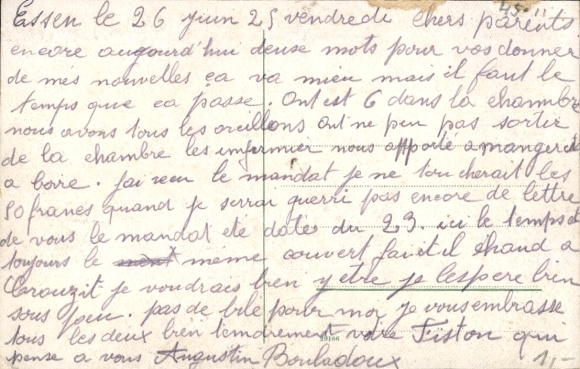 45.
Essen le 26 juin 25 vendredi chers parents
encore augourd'hui deuse mots pour vos donner
de mes nouvelles ca va mieu mais il faut le
temps que ca passe. Ont est 6 dans la chambre
nous avons tous les oreillons ont ne peu pas sortir
de la chambre les infirmier nous apporte a manger et
a boire. jai recu le mandat je ne toucherait les
50 francs quand je serrai guerri pas encore de lettre
de vous le mandat ete date du 23. ici le temps et
toujours le meme couvert fait il chaud a
je voudrais bien y etre je lespere bien
sous peu. pas de bile pour moi je vous embrasse
tous les deux bien tendrement votre Fiston qui
pense a vous Augustin Bouladoux
19166
1,-